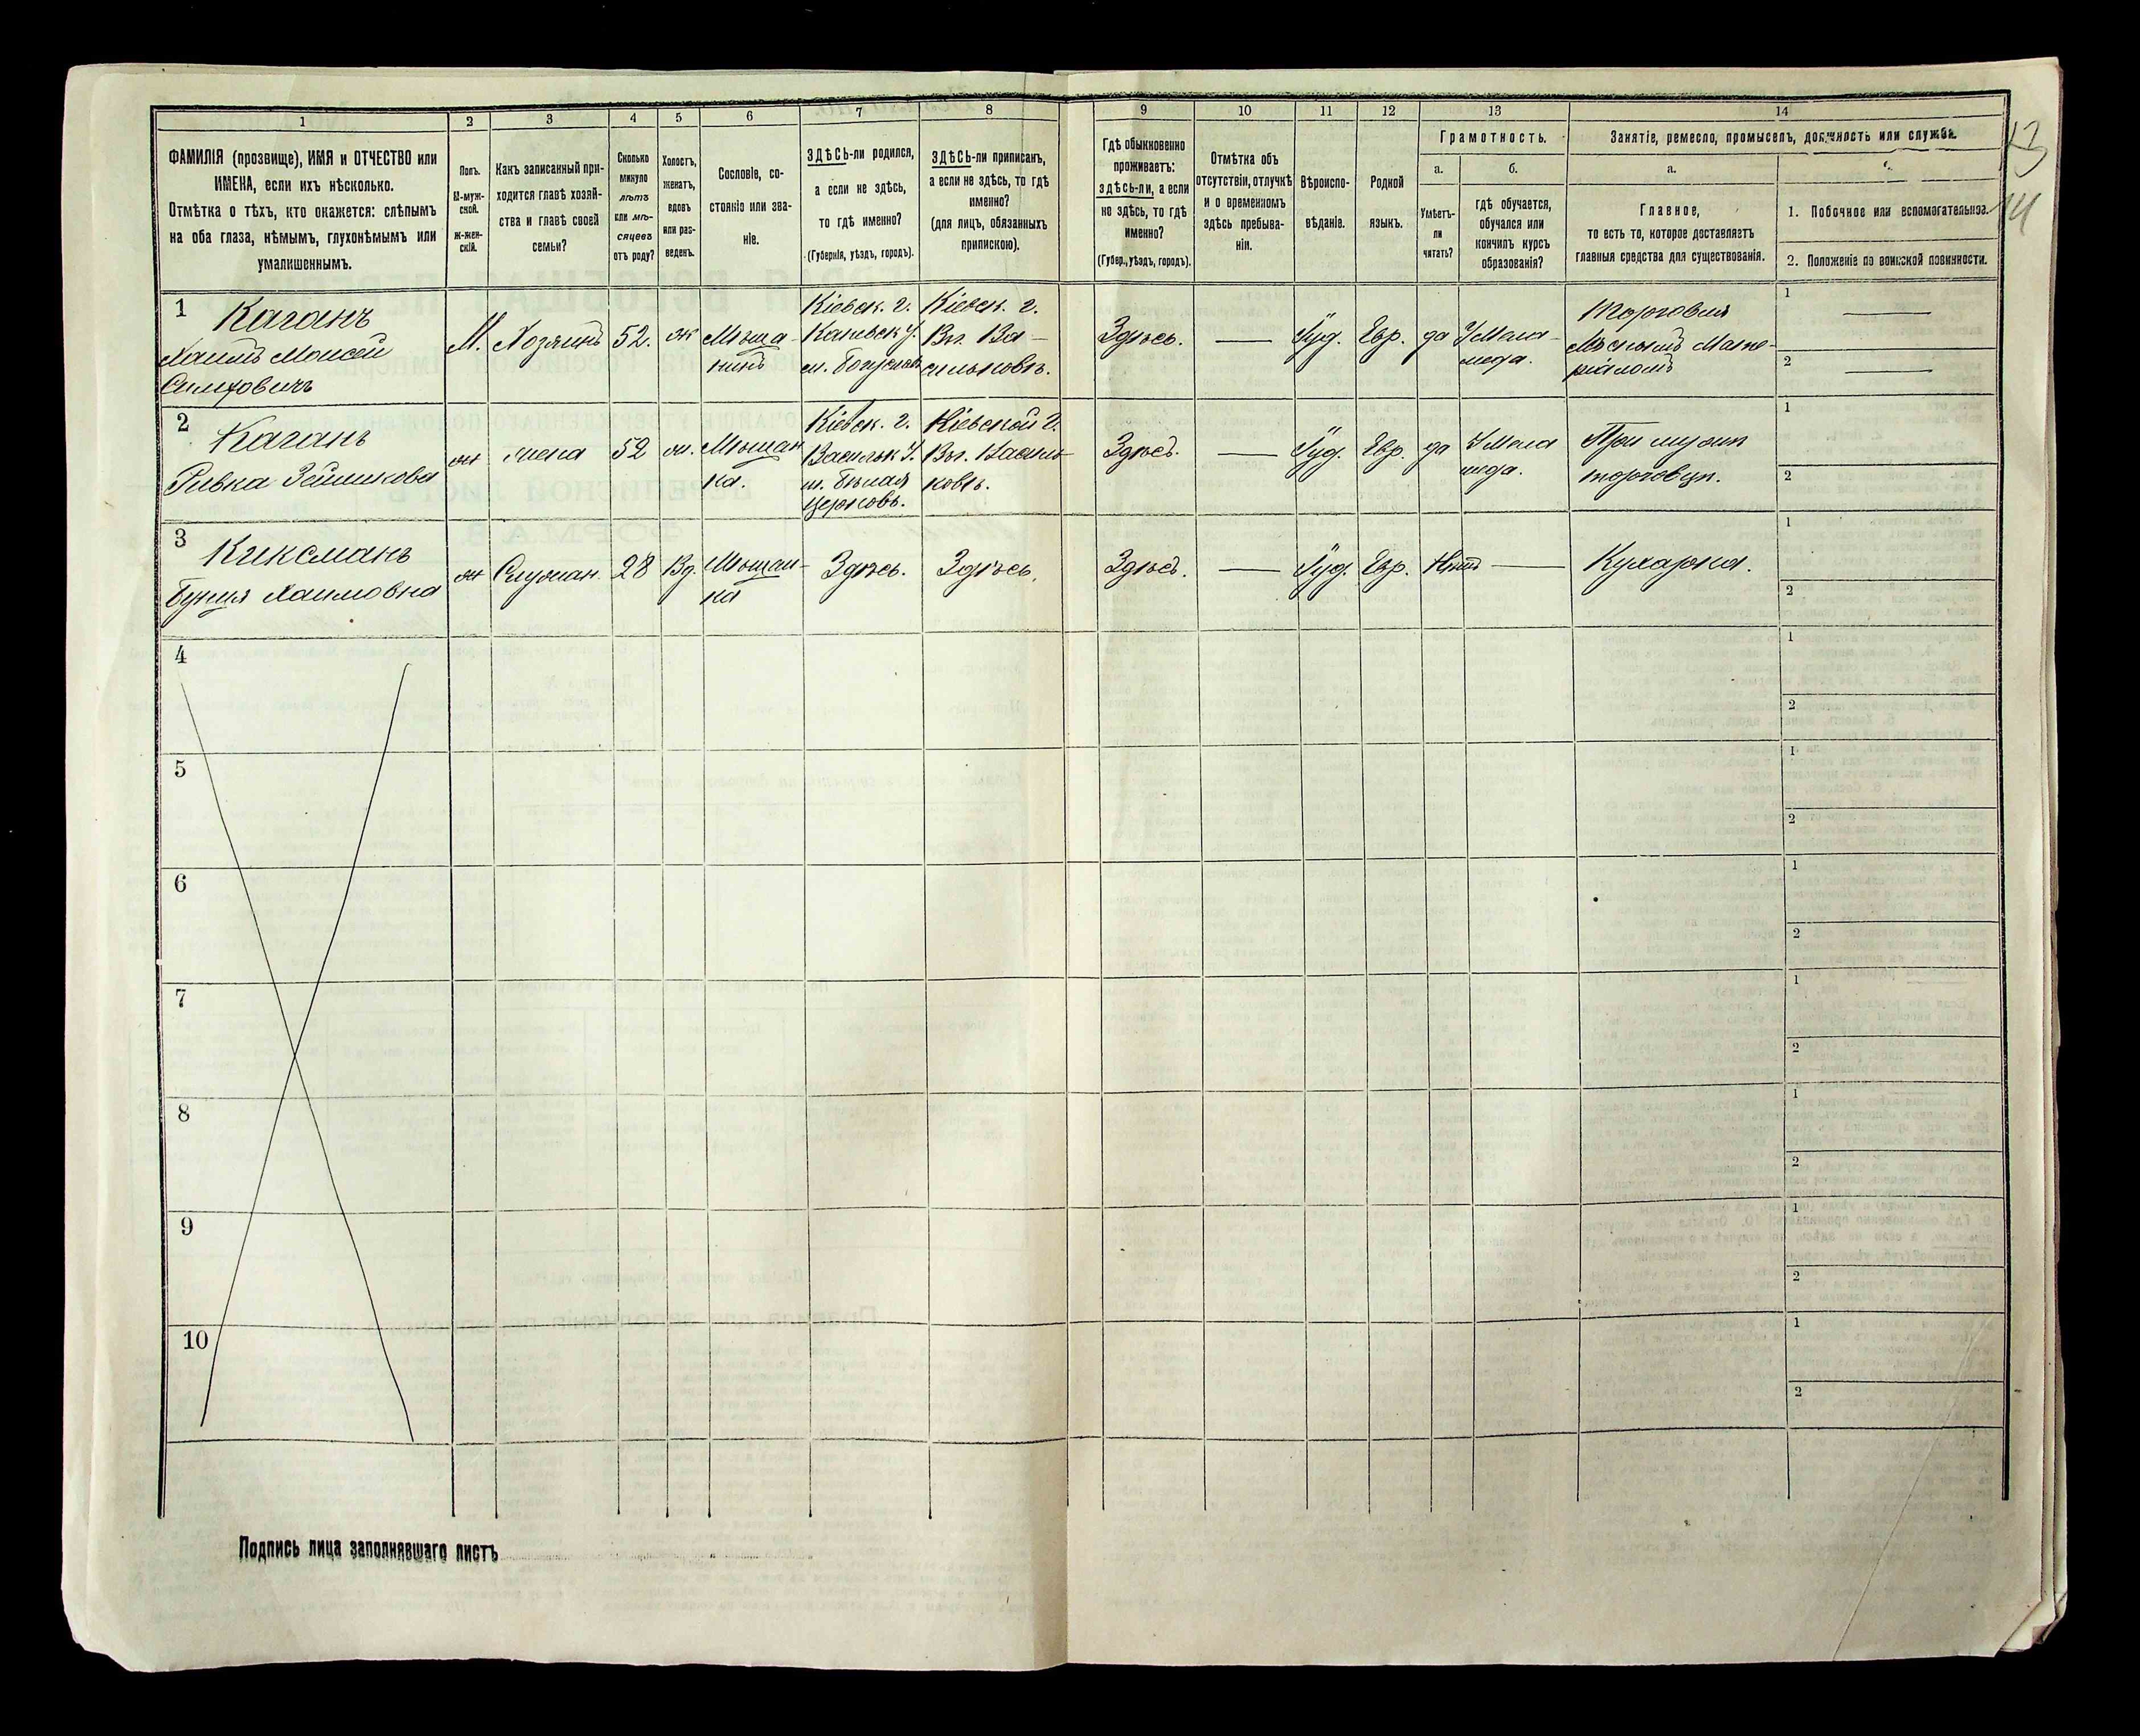 1 2 3 4 5 6 7 8 9 10 11 12 13 14
ФАМИЛІЯ (прозвище), ИМЯ и ОТЧЕСТВО или
ИМЕНА, если ихъ нѣсколько.
Отмѣтка о тѣхъ, кто окажется: слѣпымъ
на оба глаза, нѣмымъ, глухонѣмымъ или
умалишеннымъ.
Полъ.
М-муж-
ской.
Ж-жен-
скій.
Какъ записанный при-
ходится главѣ хозяй-
ства и главѣ своей
семьи?
Сколько
минуло
лѣтъ
или мѣ-
сяцевъ
отъ роду?
Холостъ,
женатъ,
вдовъ
или раз-
веденъ.
Сословіе, со-
стояніе или зва-
ніе.
ЗДѢСЬ-ли родился,
а если не здѣсь,
то гдѣ именно?
(Губернія, уѣздъ, городъ).
ЗДѢСЬ-ли приписанъ,
а если не здѣсь, то гдѣ
именно?
(для лицъ, обязанныхъ
припискою).
Гдѣ обыкновенно
проживаетъ:
здѣсь-ли, а если
не здѣсь, то гдѣ
именно?
(Губер., уѣздъ, городъ).
Отмѣтка объ
отсутствіи, отлучкѣ
и о временномъ
здѣсь пребыва-
ніи.
Вѣроиспо-
вѣданіе.
Родной
языкъ.
Грамотность.
а.
Умѣетъ-
ли
читать?
б.
гдѣ обучается,
обучался или
кончилъ курсъ
образованія?
Занятіе, ремесло, промыселъ, должность или служба.
а.
Главное,
то есть то, которое доставляетъ
главныя средства для существованія.
1. Побочное или вспомогательное.
2. Положеніе по воинской повинности.
13
14
1
Каганъ
Хаимъ Моисей
М. Хозяинъ 52. ж
Мѣща-
нинъ
Кіевск. г.
Каневск у.
м. Богуславъ
Кіевск. г.
Ва-
сильковъ.
Здѣсь. — Іуд. Евр. да
У Мела-
меда.
Торговля
Мѣстнымъ Мате-
ріаломъ
1 —
2 —
2
Каганъ
Ривка
ж жена 52 ж.
Мѣщан
ка.
Кіевск. г.
Васильк у.
м. Бѣлая
Церковь.
Кіевской г.
Василь-
ковъ.
Здѣсь. — Іуд. Евр. да
У Мела
меда.
При мужѣ
торговцѣ.
1
2
3
Киксманъ
Бунця Хаимовна
ж Служан. 28 Вд.
Мѣщан-
ка
Здѣсь. Здѣсь.
Здѣсь. — Іуд. Евр. Нѣтъ — Кухарка.
1
2
4
1
2
5
1
2
6
1
2
7
1
2
8
1
2
9
1
2
10
1
2
Подпись лица заполнявшаго листъ